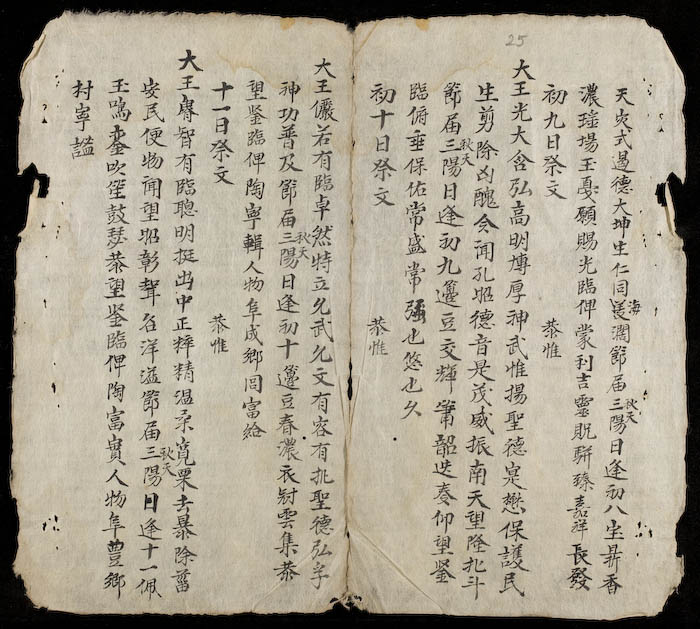 25
天戾式遏德大坤生仁同海濶節届三陽秋天日逢初八宝鼎香
濃瑤場玉戛願賜光臨俾蒙利吉靈貺駢臻嘉祥長發
初九日祭文 恭惟
大王光大含弘高明博厚神武惟揚聖德寔懋保護民
生剪除凶醜令聞孔昭德音是茂威振南天望隆北斗
節届三陽秋天日逢初九籩豆交輝簫韶迭奏仰望鉴
臨俯垂保佑常盛常强也悠也久
初十日祭文 恭惟
大王儼若有臨卓然特立允武允文有容有執聖德弘孚
神功普及節届三陽秋天日逢初十籩豆春濃衣冠雲集恭
望鉴臨俾陶寧輯人物阜成鄉閭富給
十一日祭文 恭惟
大王睿智有臨聰明挺出中正粹精温柔寬栗去暴除菑
安民便物聞望昭彰聲名洋溢節届三陽秋天日逢十一佩
玉鳴鑾吹笙鼓瑟恭望鉴臨俾陶富實人物阜豊鄉
村寧謐